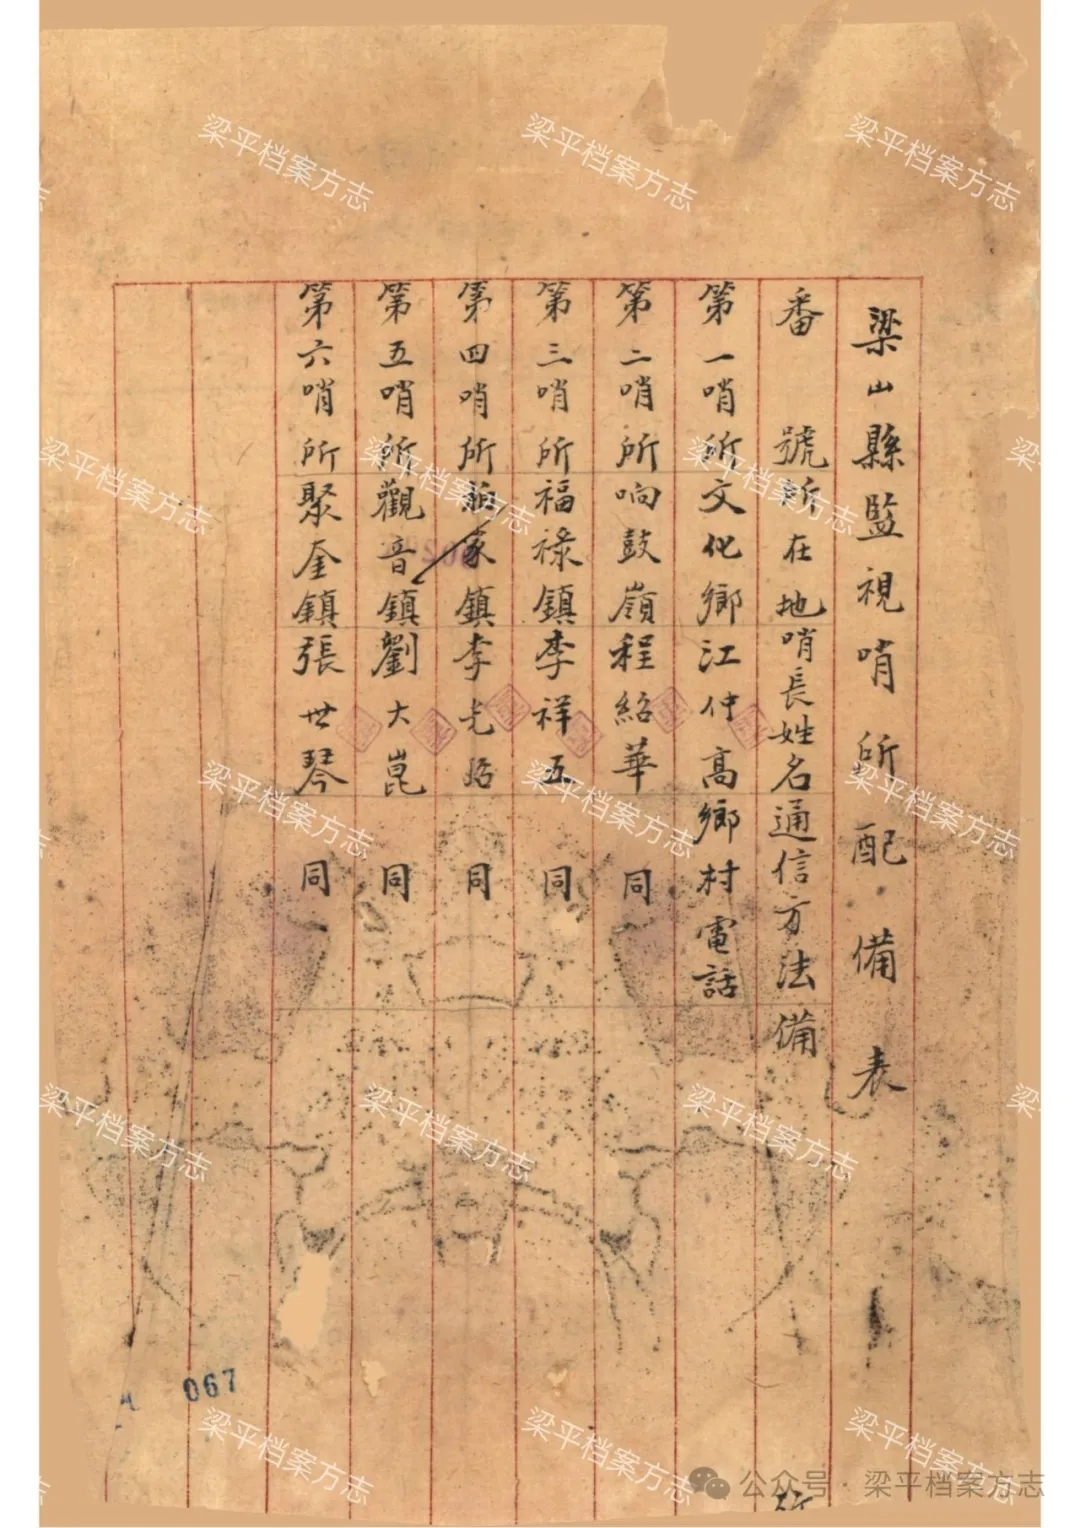 梁山縣監視哨所配備表
番號所在地哨長姓名通信方法備
第一哨所文化鄉江仲高鄉村電話
第二哨所响鼓嶺程紹華同
第三哨所福祿鎮李祥五同
第四哨所家鎮李光同
第五哨所觀音鎮劉大崑同
第六哨所聚奎鎮張世琴同
067
梁平档案方志
公众号·梁平档案方志